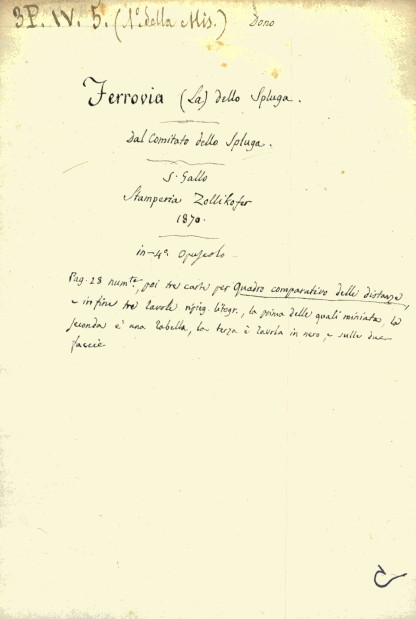 3P. IV. 5. (N.º della Mis.) Dono
Ferrovia (La) dello Spluga.
Dal Comitato dello Spluga.
S. Gallo
Stamperia Zollikofer
1870.
in-4º Opuscolo
Pag. 28 numte, poi tre carte per Quadro comparativo delle distanze,
e in fine tre tavole ripieg. litogr., la prima delle quali miniata, la
seconda è una tabella, la terza è tavola in nero, e sulle due
faccie